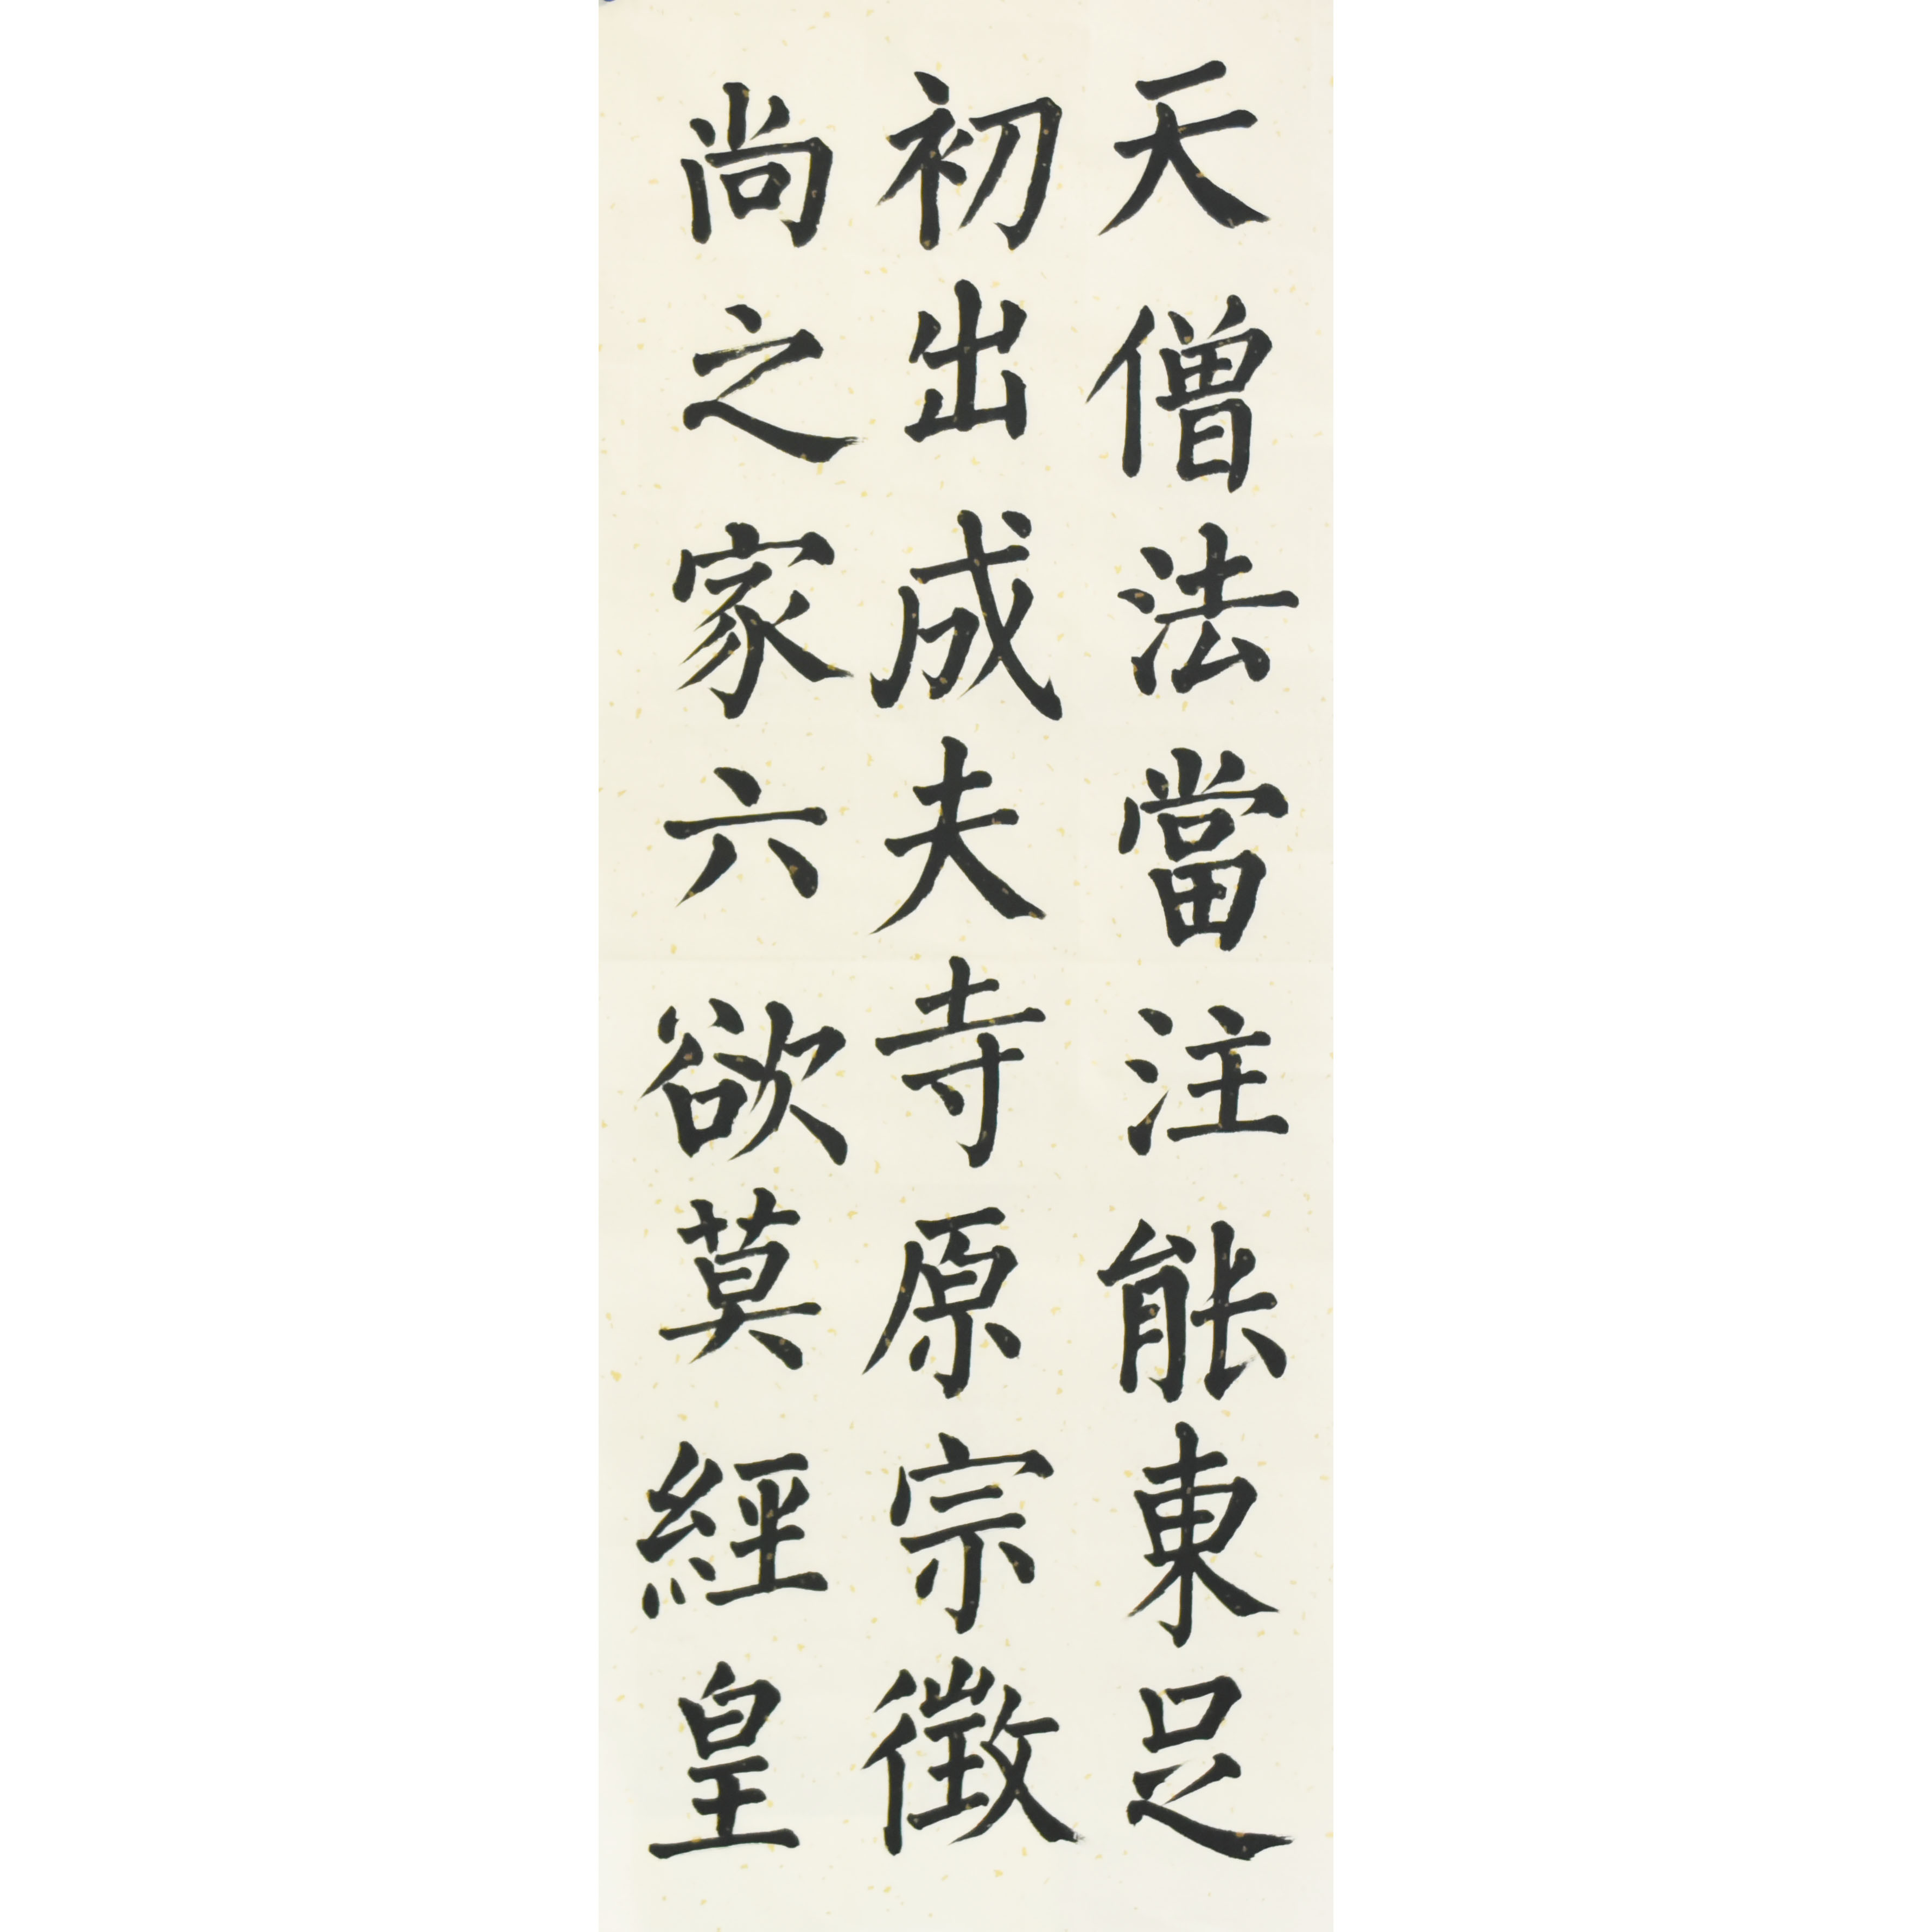 天僧法當注能東足
初出成夫寺原宗徵
尚之家六欲莫經皇